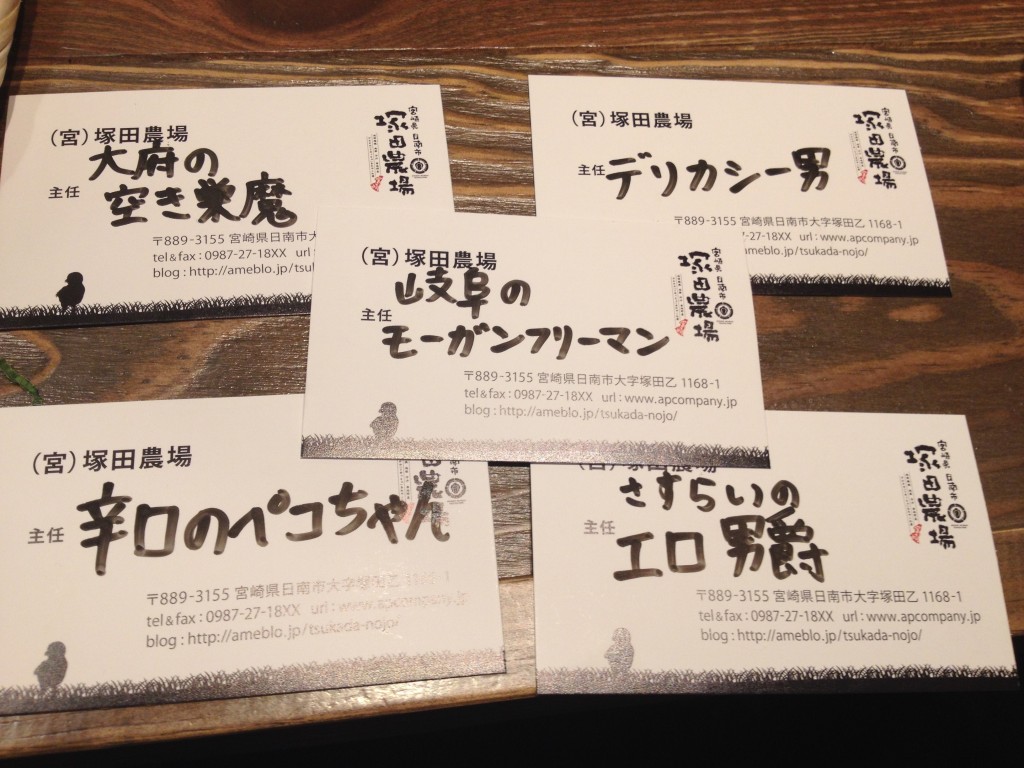 (宮)塚田農場
大府の
主任
空き巣魔
〒889-3155 宮崎県日南市大
tel&fax:0987-27-18XX u
blog:http://ameblo.jp/tsu
宮崎県 日南市
塚田農場
(宮)塚田農場
主任 デリカシー男
〒889-3155 宮崎県日南市大字塚田乙 1168-1
-27-18XX url:www.apcompany.jp
meblo.jp/tsukada-nojo/
宮崎県 日南市
塚田農場
(宮)塚田農場
岐阜の
主任
モーガンフリーマン
〒889-3155 宮崎県日南市大字塚田乙 1168-1
tel&fax:0987-27-18XX url:www.apcompany.jp
blog:http://ameblo.jp/tsukada-nojo/
宮崎県 日南市
塚田農場
(宮)塚田農場
主任 辛口のペコちゃん
〒889-3155 宮崎県日南市大字塚田乙 1168-1
tel&fax:0987-27-18XX url:www.apcompany.jp
blog:http://ameblo.jp/tsukada-nojo/
農場
(宮)塚田農場
さすらいの
主任
エロ男爵
〒889-3155 宮崎県日南市大字塚田乙 1168-1
tel&fax:0987-27-18XX url:www.apcompany.jp
blog:http://ameblo.jp/tsukada-nojo/
宮崎県 日南市
塚田農場